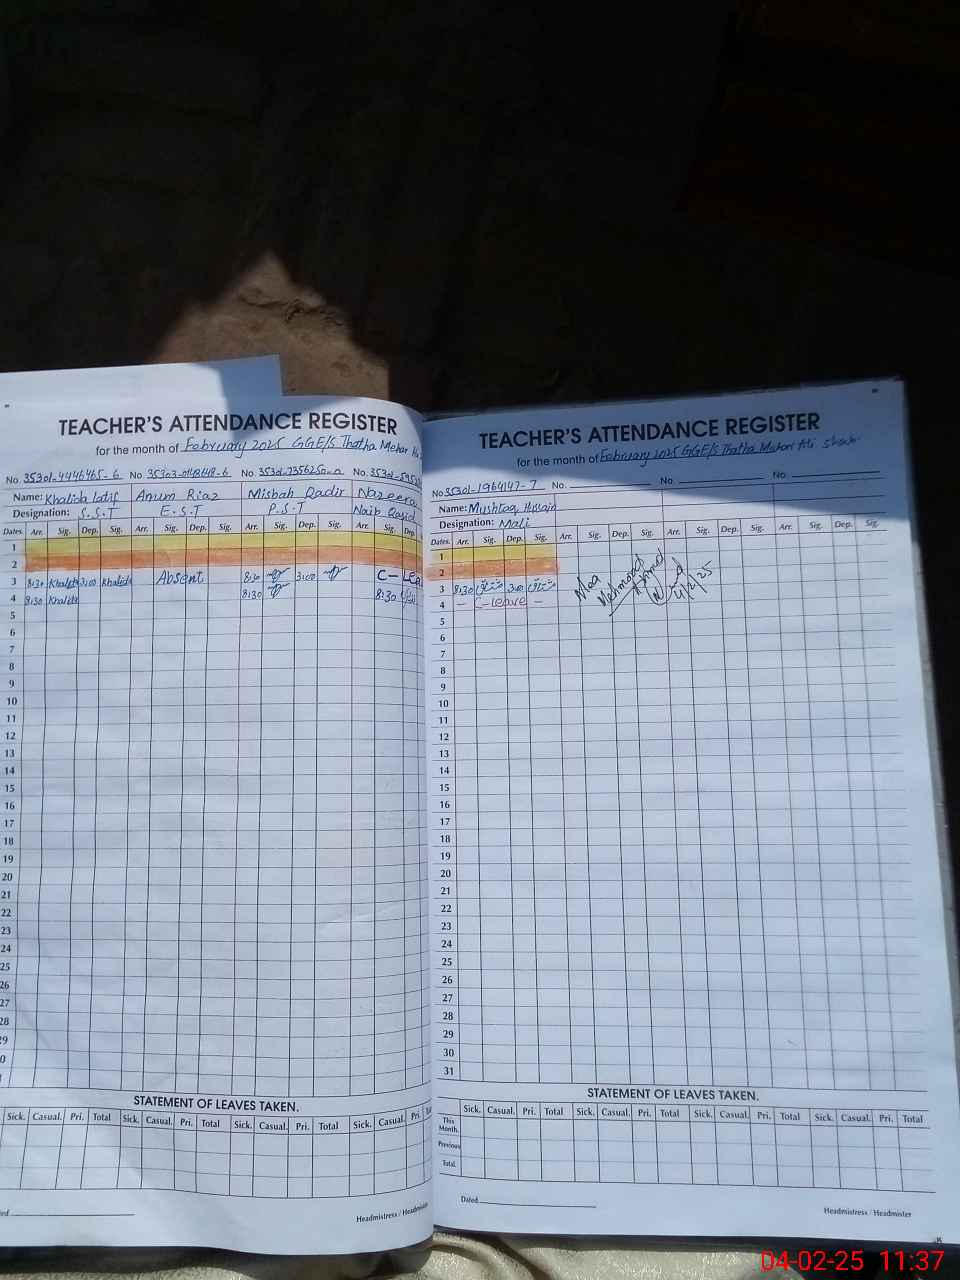 TEACHER'S ATTENDANCE REGISTER
for the month of February 2025 GGE/S Thatha Mehar
No 35301-4446465-6 No 35303-0148148-6 No. No.
Name: Khalida latif Anum Riaz Misbah Qadir Nazeera
Designation: S.S.T E.S.T P.S.T Naib Qasid
Dates. Arr. Sig. Dep. Sig. Arr. Sig. Dep. Sig. Arr. Sig. Dep. Sig. Arr. Sig. Dep.
1
2
3 8:30 Khalida 3:00 Khalida Absent 8:30 3:00 C-Lea
4 8:30 Khalida 8:30 8:30
5
6
7
8
9
10
11
12
13
14
15
16
17
18
19
20
21
22
23
24
25
26
27
28
29
0
STATEMENT OF LEAVES TAKEN.
Sick. Casual. Pri. Total Sick. Casual. Pri. Total Sick. Casual. Pri. Total Sick. Casual. Pri.
Headmistress / Headmister
TEACHER'S ATTENDANCE REGISTER
for the month of February 2025 GGE/S Thatha Mehar Ali Shah
No 35301-1964147-7 No. No. No.
Name: Mushtaq Hussain
Designation: Mali
Dates. Arr. Sig. Dep. Sig. Arr. Sig. Dep. Sig. Arr. Sig. Dep. Sig. Arr. Sig. Dep. Sig.
1
2
3 8:30 مشتاق 3:00 مشتاق
4 - C-Leave -
Mea
Mehmood Ahmed
4/2/25
5
6
7
8
9
10
11
12
13
14
15
16
17
18
19
20
21
22
23
24
25
26
27
28
29
30
31
STATEMENT OF LEAVES TAKEN.
Sick. Casual. Pri. Total Sick. Casual. Pri. Total Sick. Casual. Pri. Total Sick. Casual. Pri. Total
This Month.
Previous
Total.
Dated
Headmistress / Headmister
04-02-25 11:37